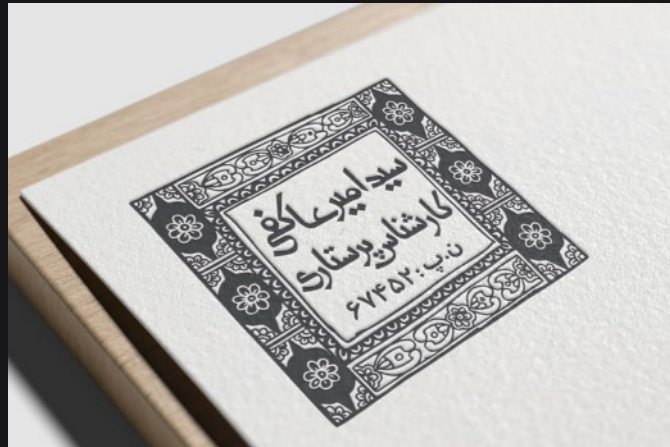 سید امیر عاکفی
کارشناس پرستاری
ن.پ: ۶۷۴۵۲